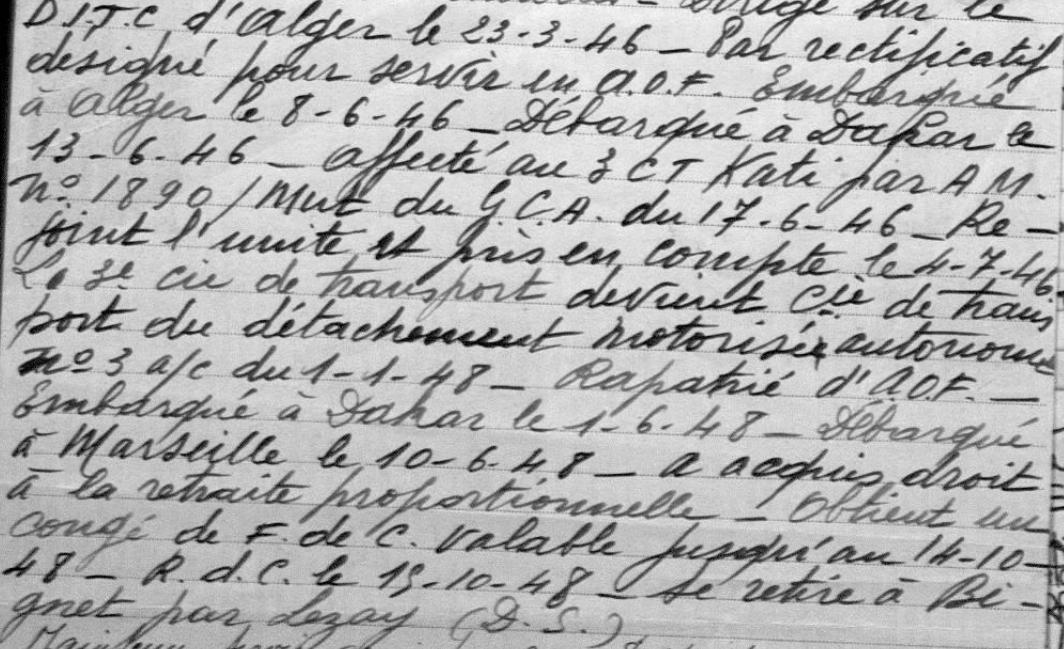 dirigé sur le
D.I.T.C d'Alger le 23-3-46 _ Par rectificatif
désigné pour servir en A.O.F. Embarqué
à Alger le 8-6-46 _ Débarqué à Dakar le
13-6-46 _ affecté au 3 CT Kati par A M.
N° 1890/Mut du G.C.A. du 17-6-46 _ Re-
joint l'unité et pris en compte le 4-7-46.
La 3e cie de transport devient Cie de trans
port du détachement motorisée autonome
n° 3 a/c du 1-1-48 _ Rapatrié d'A.O.F. _
Embarqué à Dakar le 1-6-48 _ Débarqué
à Marseille le 10-6-48 _ a acquis droit
à la retraite proportionnelle _ Obtient un
congé de F. de C. valable jusqu'au 14-10-
48 _ R.d.C. le 15-10-48 _ se retire à Bi-
gnet par Lezay (D.S.)